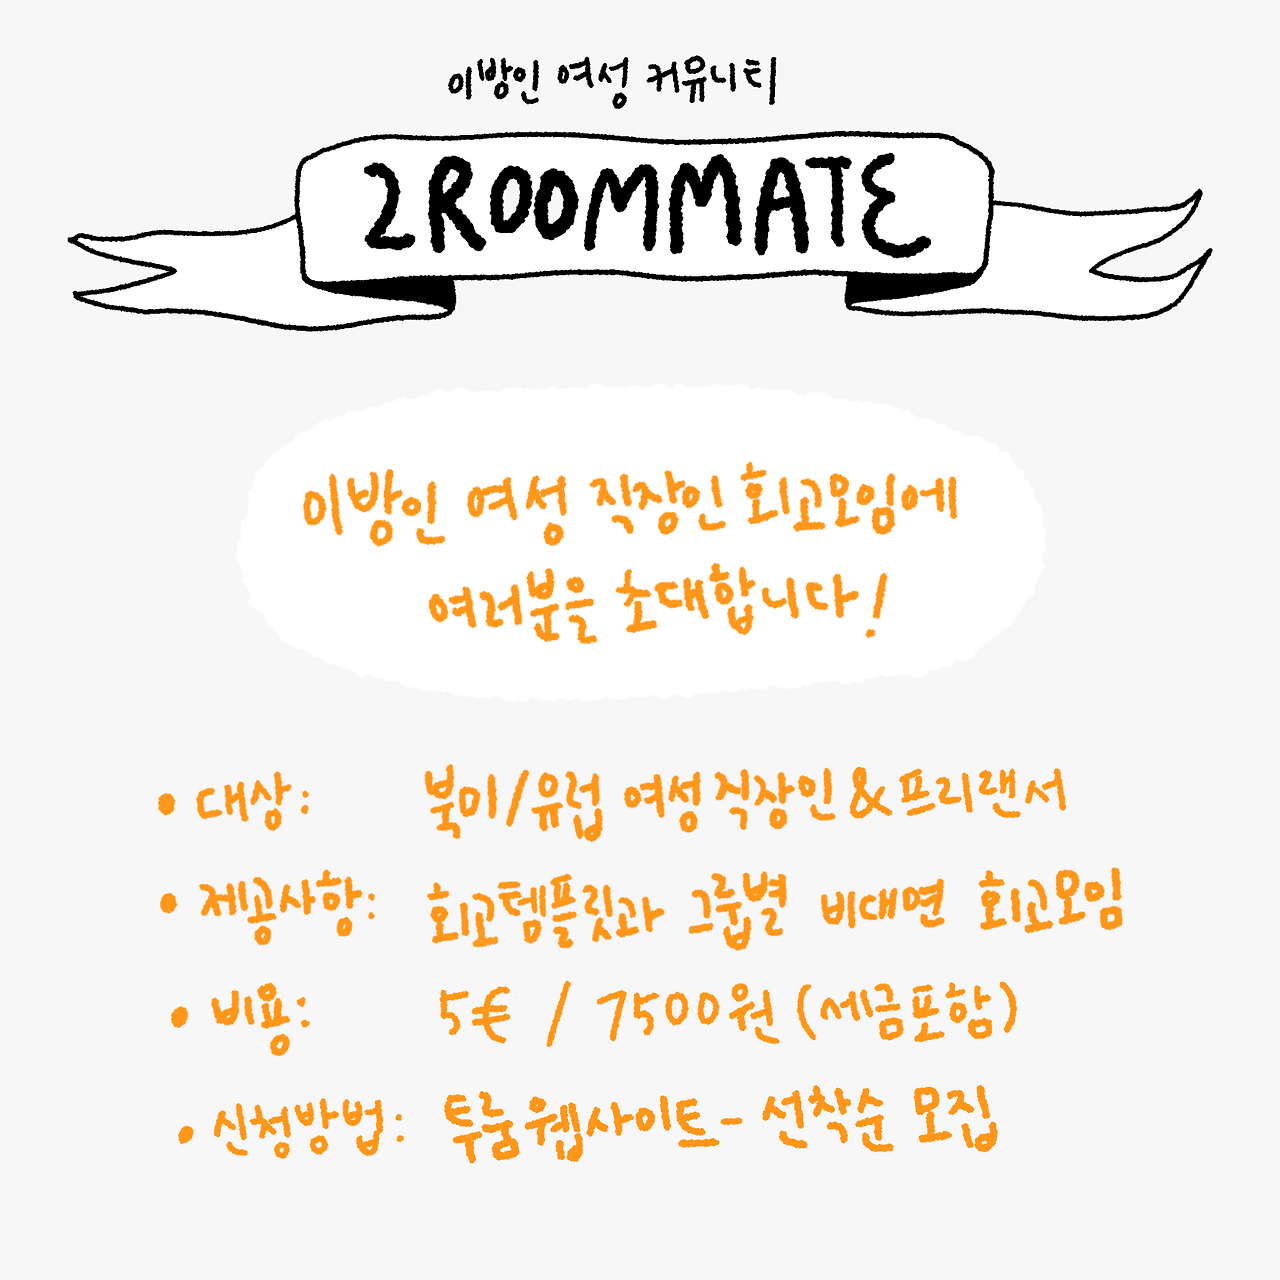 이방인 여성 커뮤니티
2ROOMMATE
이방인 여성 직장인 회고모임에
여러분을 초대합니다!
• 대상: 북미/유럽 여성 직장인 & 프리랜서
• 제공사항: 회고템플릿과 그룹별 비대면 회고모임
• 비용: 5€ / 7500원 (세금포함)
• 신청방법: 투룸 웹사이트 - 선착순 모집